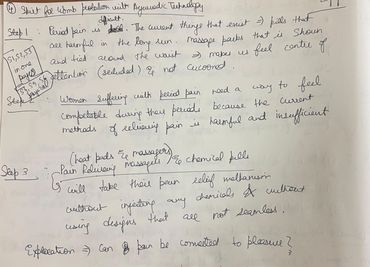 ④ Shirt for Womb protection with Ayurvedic Technology
Step 1: Period pain is difficult. The current things that exist => pills that
are harmful in the long run. Massage pads that is shown
and tied around the waist => makes us feel center of
attention (secluded) & not cocooned.
S1, S2, S3
in one
page
Step
Women suffering with period pain need a way to feel
comfortable during their periods because the current
methods of relieving pain is harmful and insufficient
(heat pads & massagers)
Step 3
Pain Relieving massagers / & chemical pills
will take their pain relief methanism
without injecting any chemicals & without
using designs that are not seamless.
Exploration => Can pain be converted to pleasure?